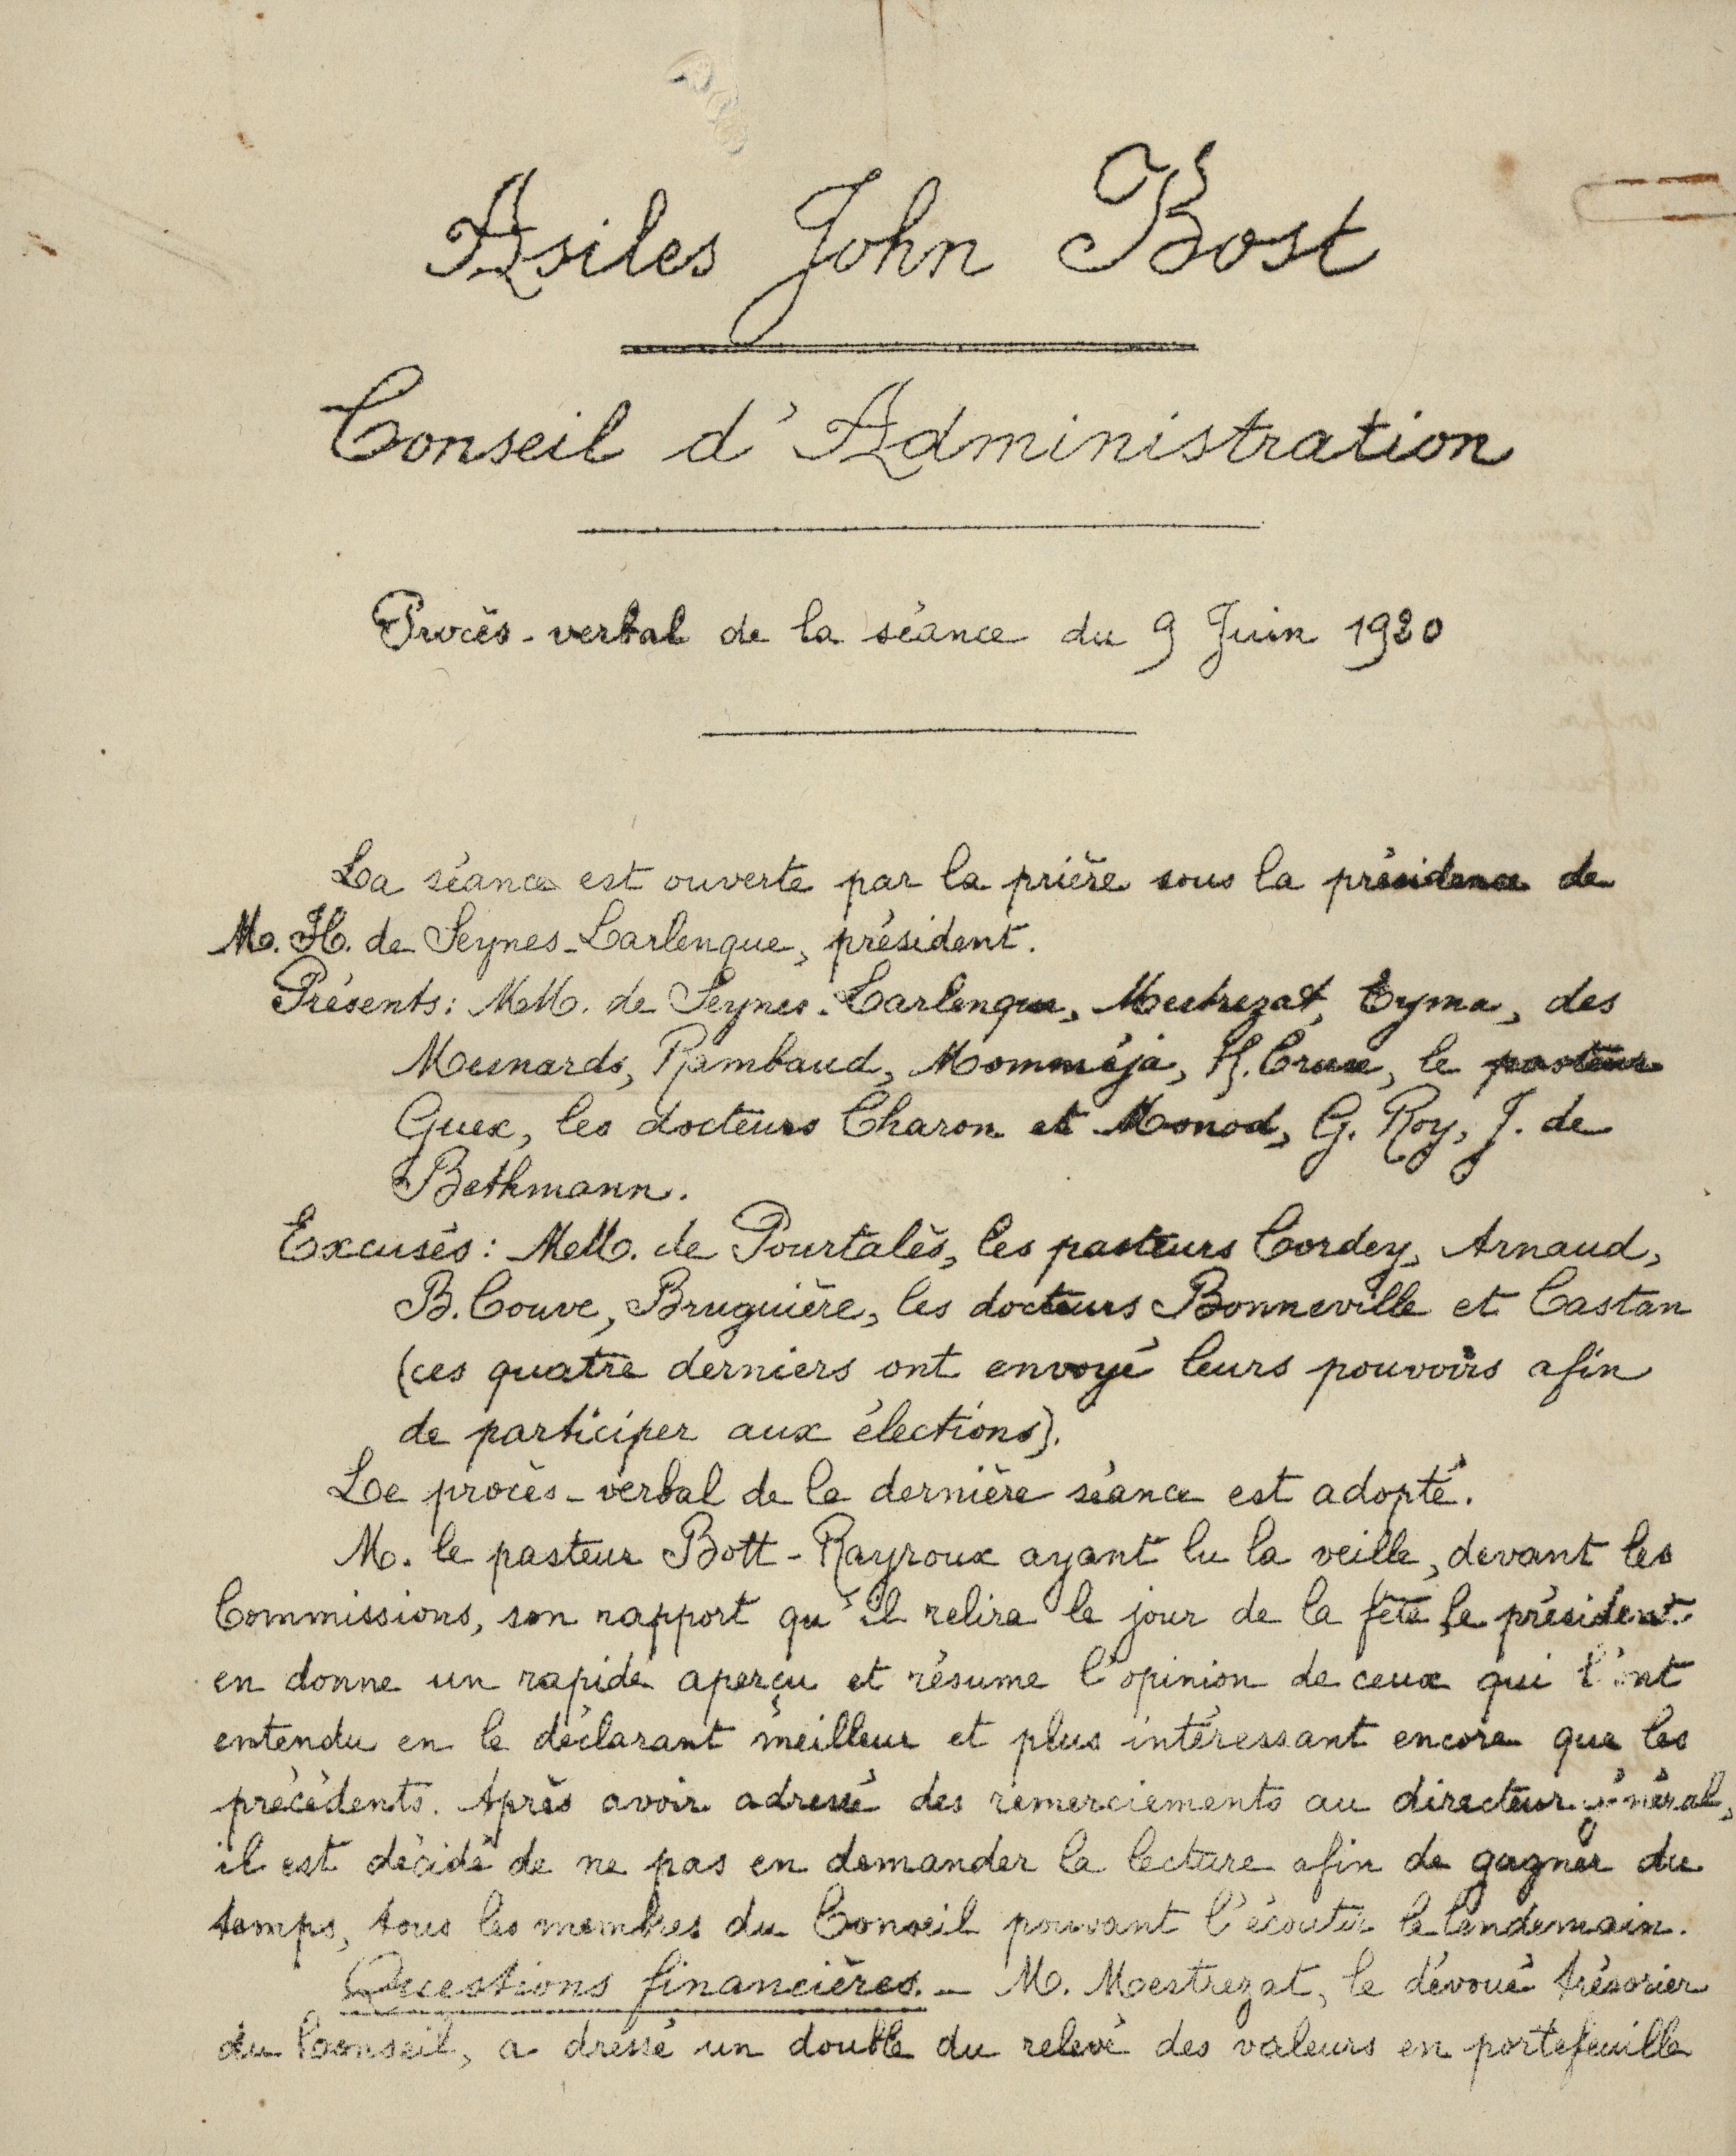 Asiles John Bost
Conseil d'Administration
Procès-verbal de la séance du 9 Juin 1920
La séance est ouverte par la prière sous la présidence de
M. H. de Seynes-Larlenque, président.
Présents: MM. de Seynes-Larlenque, Mestrezat, Eyma, des
Mesnards, Rambaud, Momméja, H. Cruse, le pasteur
Guex, les docteurs Charon et Monod, G. Roy, J. de
Bethmann.
Excusés: MM. de Pourtalès, les pasteurs Cordey, Arnaud,
B. Couve, Bruguière, les docteurs Bonneville et Castan
(ces quatre derniers ont envoyé leurs pouvoirs afin
de participer aux élections).
Le procès-verbal de la dernière séance est adopté.
M. le pasteur Bott-Rayroux ayant lu la veille, devant les
Commissions, son rapport qu'il relira le jour de la fête le président
en donne un rapide aperçu et résume l'opinion de ceux qui l'ont
entendu en le déclarant meilleur et plus intéressant encore que les
précédents. Après avoir adressé des remerciements au directeur général,
il est décidé de ne pas en demander la lecture afin de gagner du
temps, tous les membres du Conseil pouvant l'écouter le lendemain.
Questions financières. - M. Mestrezat, le dévoué trésorier
du Conseil, a dressé un double du relevé des valeurs en portefeuille